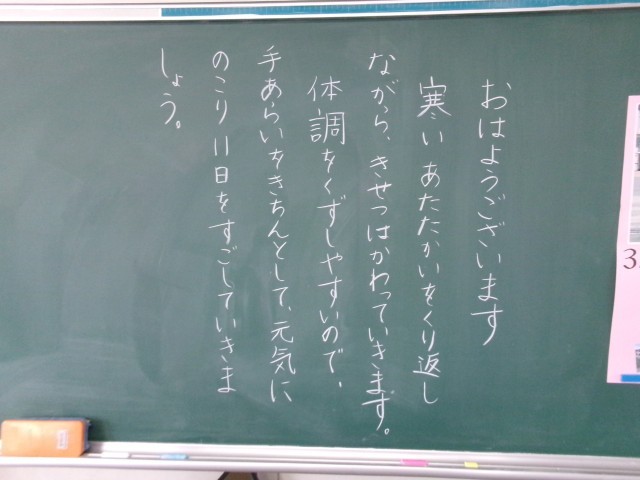 おはようございます
寒い あたたかいをくり返し
ながら、きせつはかわっていきます。
体調をくずしやすいので、
手あらいをきちんとして、元気に
のこり11日をすごしていきま
しょう。
3